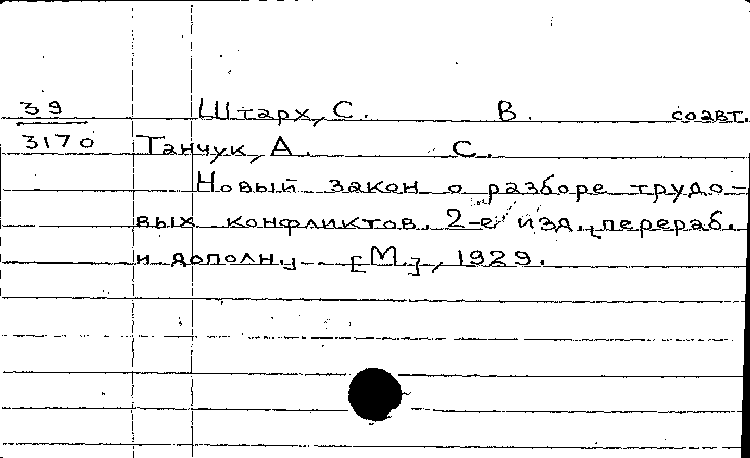 39 Штарх, С. В. соавт.
3170 Танчук, А. С.
Новый закон о разборе трудо-
вых конфликтов. 2-е изд., перераб.
и дополн., [М.], 1929.